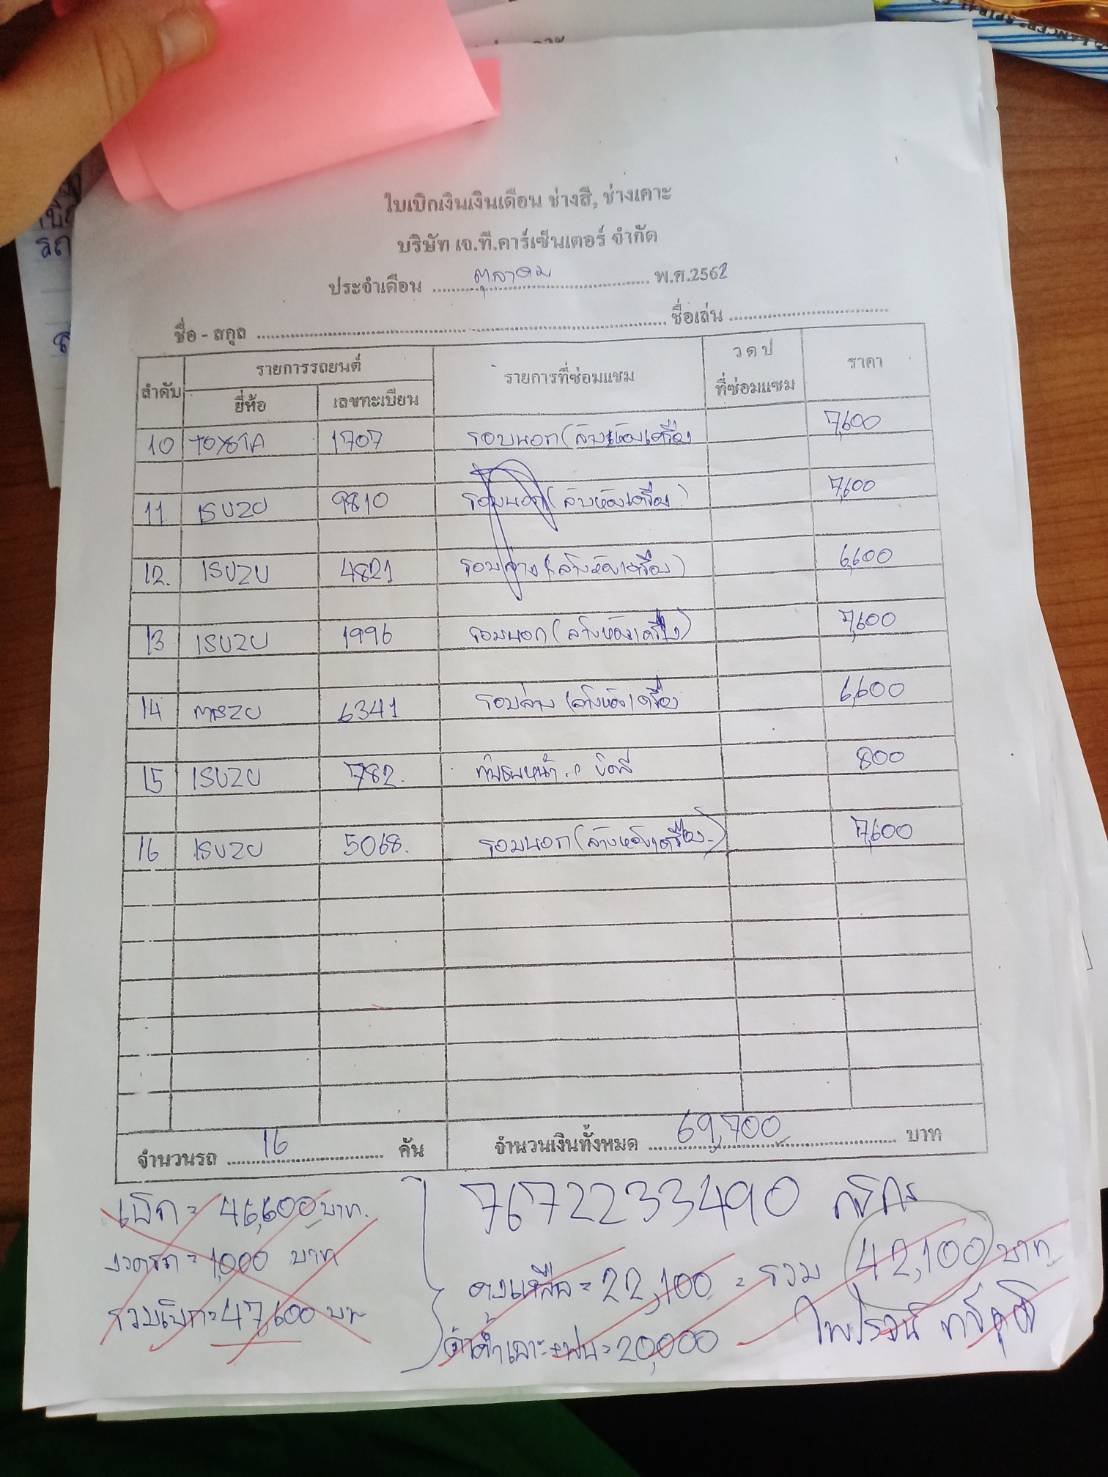 ใบเบิกเงินเงินเดือน ช่างสี, ช่างเคาะ
บริษัท เจ.ที.คาร์เซ็นเตอร์ จำกัด
ประจำเดือน ตุลาคม พ.ศ.2562
ชื่อ - สกุล ชื่อเล่น
ลำดับ รายการรถยนต์ รายการที่ซ่อมแซม ว ด ป ที่ซ่อมแซม ราคา
ยี่ห้อ เลขทะเบียน
10 TOYOTA 1707 รอบนอก (ล้างห้องเครื่อง 7,600
11 ISUZU 9810 รอบนอก (ล้างห้องเครื่อง) 7,600
12. ISUZU 4821 รอบล่าง (ล้างห้องเครื่อง) 6,600
13 ISUZU 1996 รอบนอก (ล้างห้องเครื่อง) 7,600
14 6341 รอบล่าง (ล้างห้องเครื่อง 6,600
15 ISUZU 782. 800
16 ISUZU 5068. รอบนอก (ล้างห้องเครื่อง.) 7,600
จำนวนรถ 16 คัน จำนวนเงินทั้งหมด 69,700 บาท
เบิก = 46,600 บาท. 7672233490 กสิกร
งวดรถ = 1,000 บาท คงเหลือ = 22,100 = รวม 42,100 บาท
รวมเบิก = 47,600 บาท = 20,000